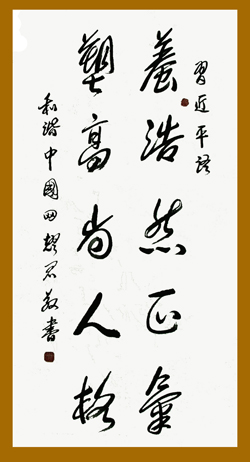 習近平語
養浩然正氣
塑高尚人格
和諧中國四書